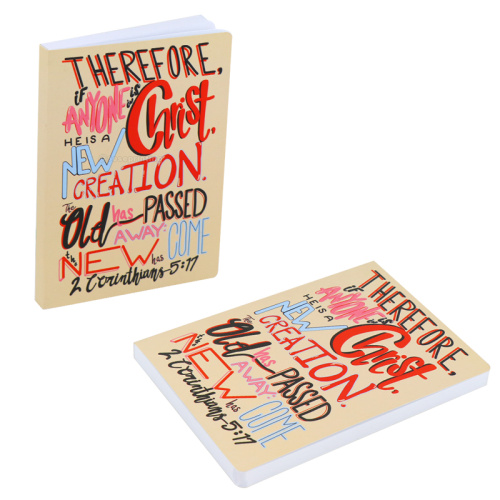 THEREFORE,
if ANYONE is in Christ,
HE IS A
NEW
CREATION.
The Old has PASSED
AWAY:
the NEW has COME
2 Corinthians 5:17
THEREFORE,
if ANYONE is in Christ,
HE IS A
NEW
CREATION.
The Old has PASSED
AWAY:
the NEW has COME
2 Corinthians 5:17